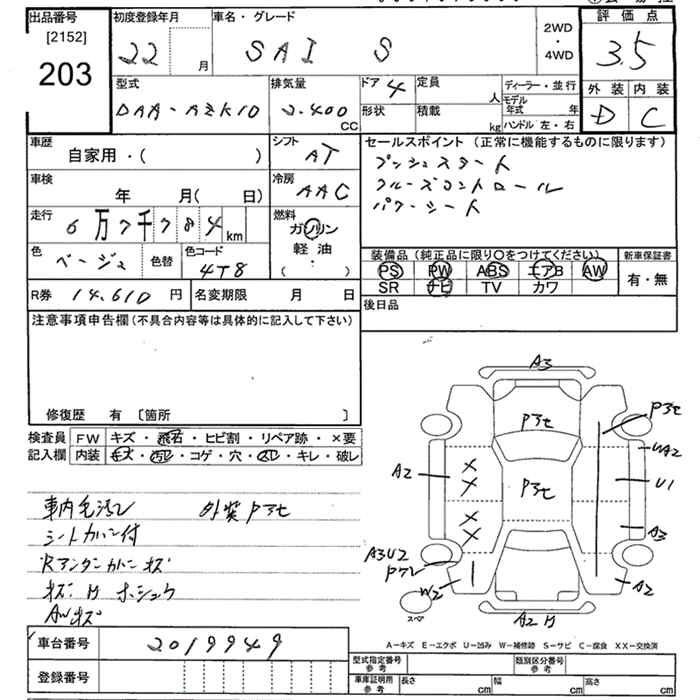 出品番号
[2152]
203
初度登録年月
22 月
車名・グレード
SAI S
2WD
・
4WD
評価点
3.5
外装 内装
D C
型式
DAA-AZK10
排気量
2.400
CC
ドア 4
形状
定員
人
積載
kg
ディーラー・並行
モデル
年式 年
ハンドル 左・右
車歴
自家用・( )
シフト
AT
車検
年 月( 日)
冷房
AAC
走行
6万7千784 km
燃料
ガソリン
軽油
( ・ )
色
ベージュ
色替
色コード
4T8
R券 14,610 円
名変期限 月 日
セールスポイント (正常に機能するものに限ります)
プッシュスタート
クルーズコントロール
パワーシート
装備品 (純正品に限り○をつけてください)
PS PW ABS エアB AW
SR ナビ TV カワ
新車保証書
有・無
後日品
注意事項申告欄 (不具合内容等は具体的に記入して下さい)
修復歴 有 [箇所 ]
検査員
記入欄
FW キズ・飛石・ヒビ割・リペア跡・×要
内装 キズ・汚レ・コゲ・穴・スレ・キレ・破レ
外装Pヨセ
シートカバー付
Rアンダーカバーキズ
AWキズ
A3
Pヨセ
Pヨセ
Pヨセ
UA2
U1
A2
A3
A3U2
W2
A2
スペア
車台番号 2019949
登録番号
A-キズ E-エクボ U-凹み W-補修跡 S-サビ C-腐食 XX-交換済
型式指定番号
参考
類別区分番号
参考
車庫証明用
参考
長さ cm
幅 cm
高さ cm